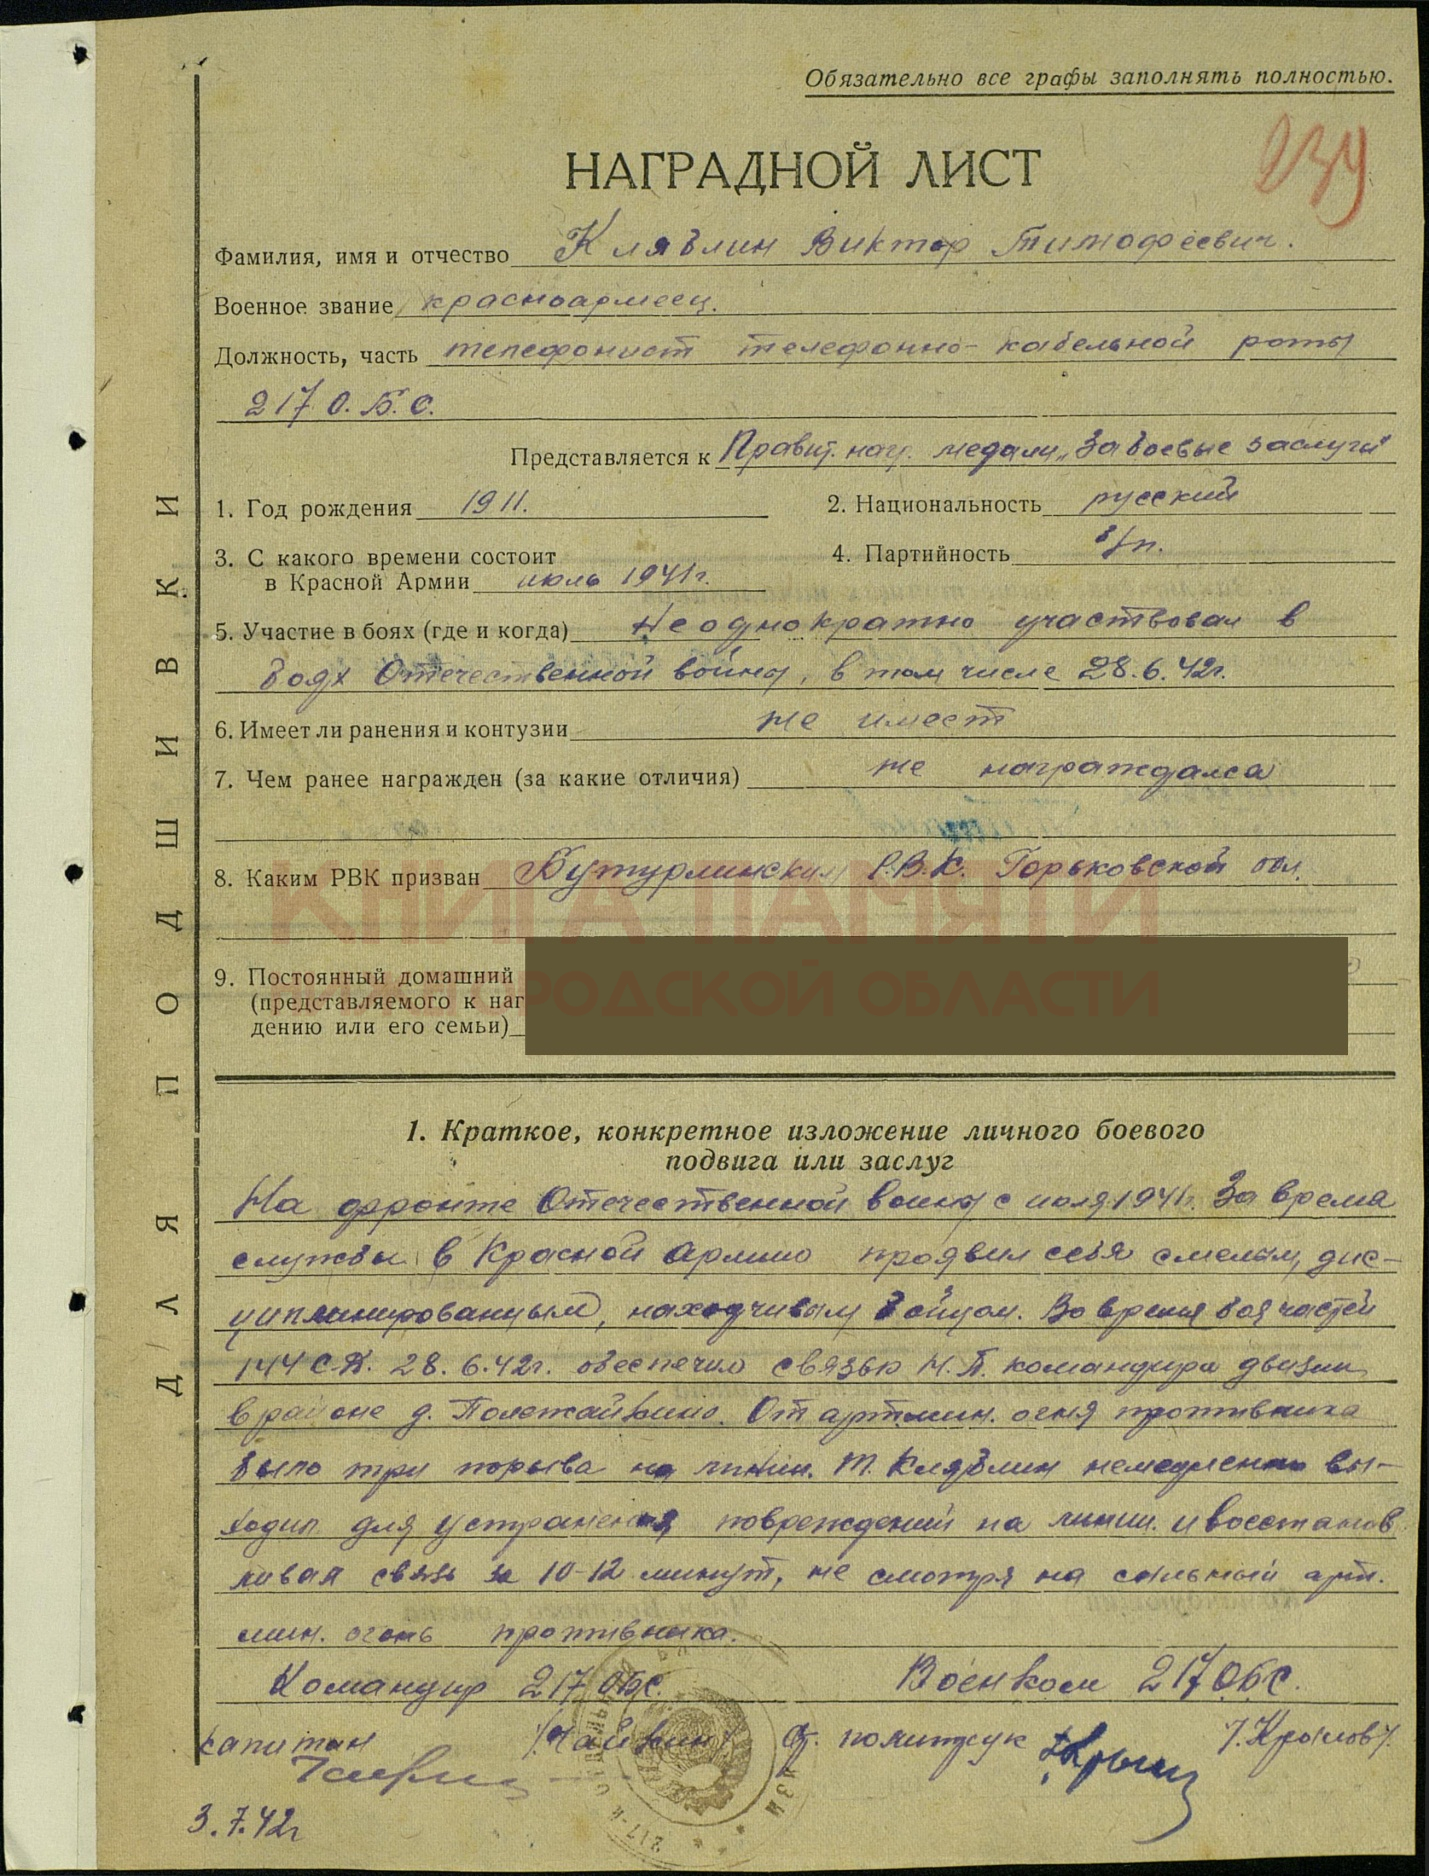 Обязательно все графы заполнять полностью.
239
НАГРАДНОЙ ЛИСТ
Фамилия, имя и отчество Клявлин Виктор Тимофеевич.
Военное звание красноармеец.
Должность, часть телефонист телефонно-кабельной роты
217 О.Б.С.
Представляется к Правит. наг. медали „За боевые заслуги"
1. Год рождения 1911. 2. Национальность русский
3. С какого времени состоит
в Красной Армии июль 1941г. 4. Партийность б/п.
5. Участие в боях (где и когда) Неоднократно участвовал в
боях Отечественной войны, в том числе 28.6.42г.
6. Имеет ли ранения и контузии не имеет
7. Чем ранее награжден (за какие отличия) не награждался
8. Каким РВК призван Бутурлинским Р.В.К. Горьковской обл.
КНИГА ПАМЯТИ
9. Постоянный домашний
(представляемого к наг
дению или его семьи)
НИЖЕГОРОДСКОЙ ОБЛАСТИ
ДЛЯ ПОДШИВКИ
1. Краткое, конкретное изложение личного боевого
подвига или заслуг
На фронте Отечественной войны с июля 1941г. За время
службы в Красной Армию проявил себя смелым, дис-
циплинированным, находчивым бойцом. Во время боя частей
144 С.Д. 28.6.42г. обеспечил связью Н.П. командира дивизии
в районе д. Полотайкино. От арт.мин. огня противника
было три порыва на линии. Т. Клявлин немедленно вы-
ходил для устранения повреждений на линии и восстанов
ливал связь за 10-12 минут, не смотря на сильный арт.
мин. огонь противника.
Командир 217 ОБС. Военком 217 ОБС.
капитан /Чайкин/ ст. политрук /Крылов/.
3.7.42г